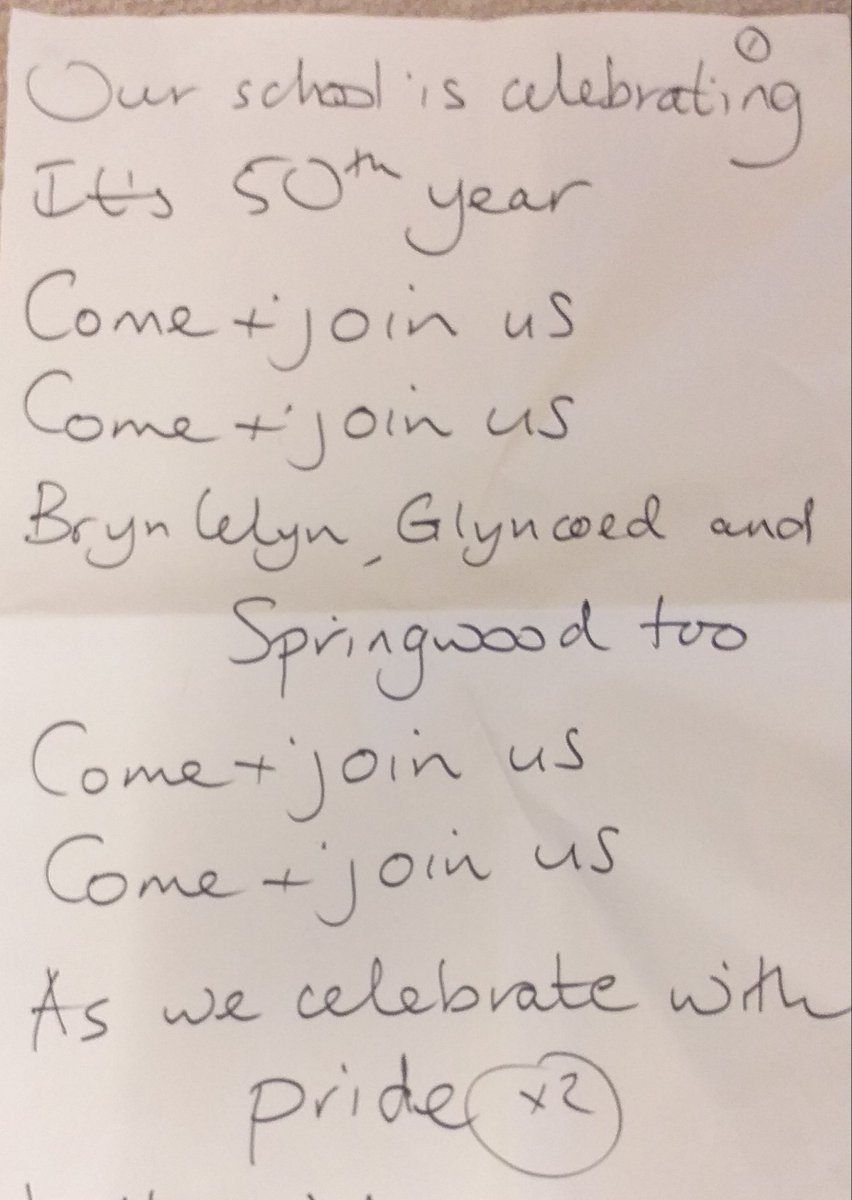 ①
Our school is celebrating
It's 50th year
Come + join us
Come + join us
Bryn Celyn, Glyncoed and
Springwood too
Come + join us
Come + join us
As we celebrate with
pride x2